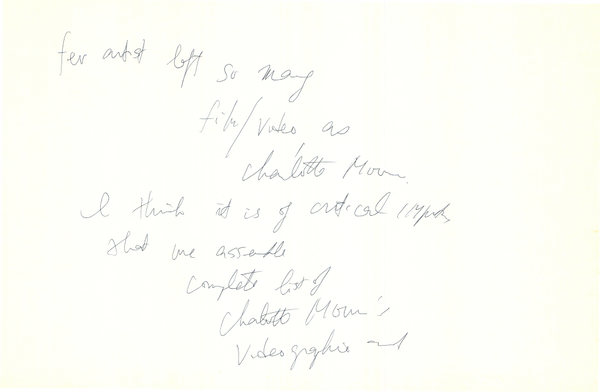 few artist left so many
film/video as
Charlotte Moorman.
I think it is of critical import
that we assemble
complete list of
Charlotte Moorman's
Videographie and